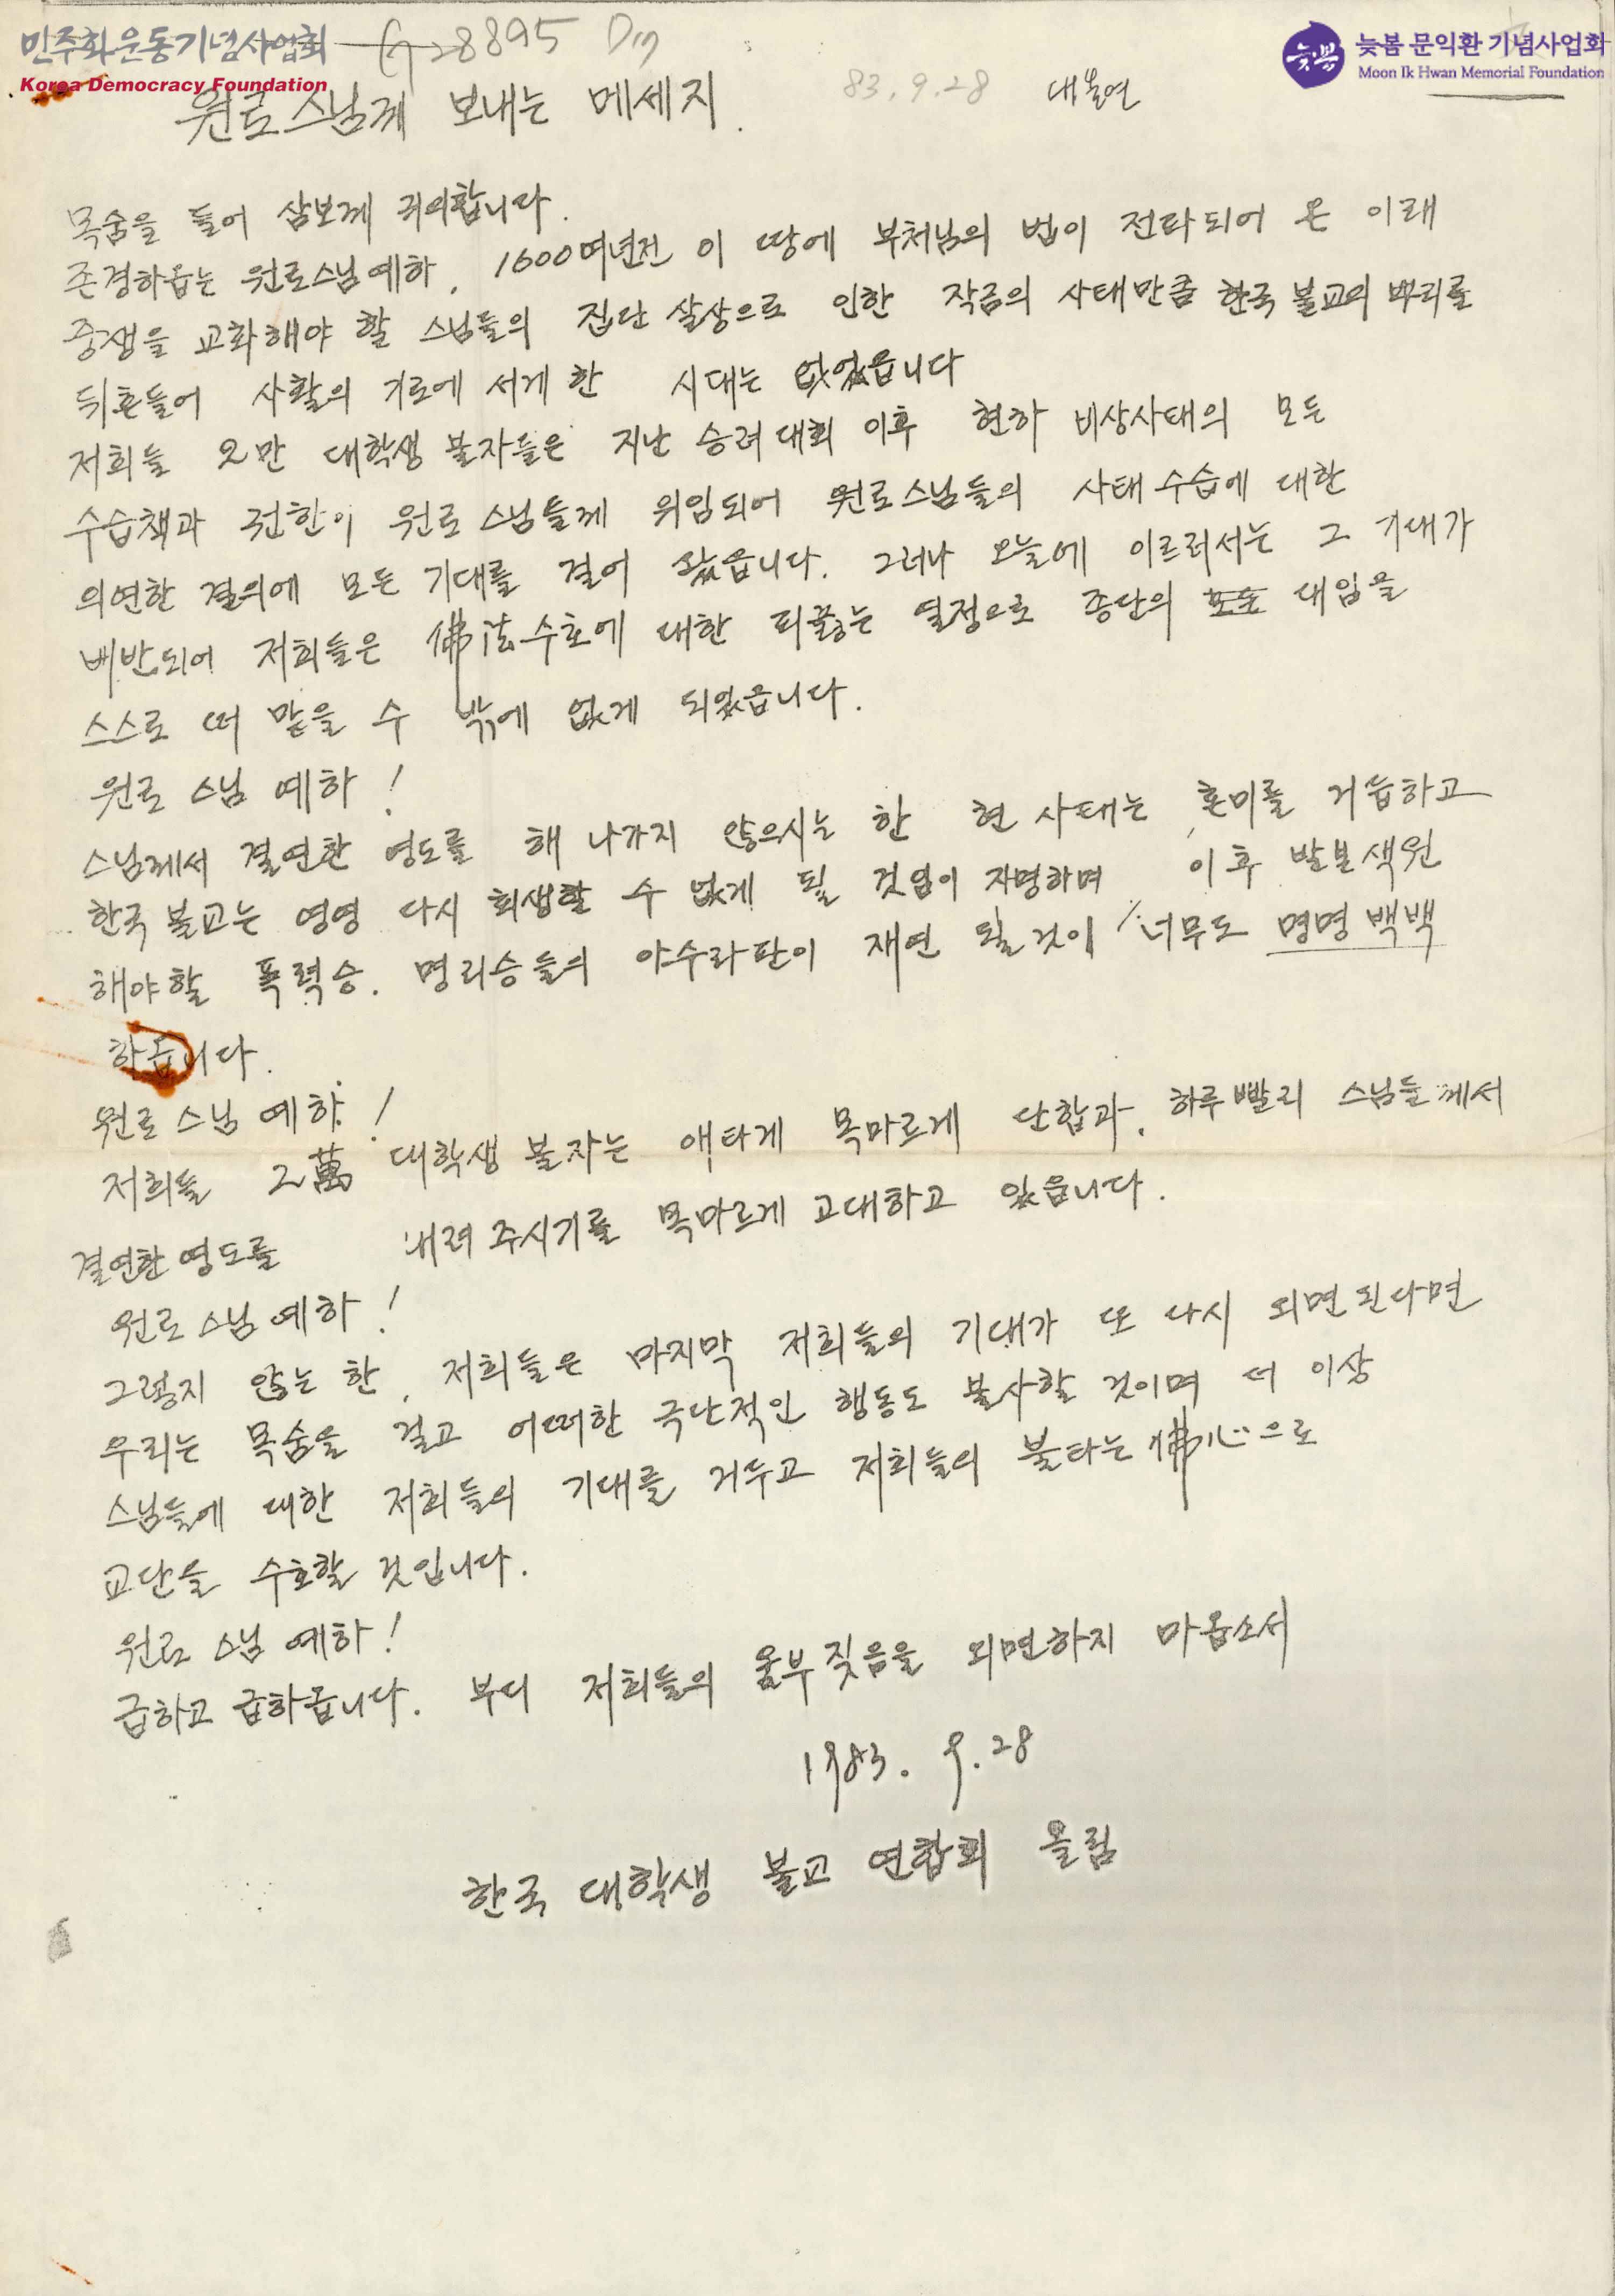 민주화운동기념사업회
Korea Democracy Foundation
늦봄
늦봄 문익환 기념사업회
Moon Ik Hwan Memorial Foundation
83. 9. 28 대불연
원로스님께 보내는 메세지.
목숨을 들어 삼보께 귀의합니다.
존경하옵는 원로스님 예하, 1600여년전 이 땅에 부처님의 법이 전타되어 온 이래
중생을 교화해야 할 스님들의 집단 살상으로 인한 작금의 사태만큼 한국 불교의 뿌리를
뒤흔들어 사활의 기로에 서게 한 시대는 없었읍니다
저희들 오만 대학생 불자들은 지난 승려대회 이후 현하 비상사태의 모든
수습책과 전한이 원로 스님들께 위임되어 원로스님들의 사태 수습에 대한
의연한 결의에 모든 기대를 걸어 왔읍니다. 그러나 오늘에 이르러서는 그 기대가
배반되어 저희들은 佛法수호에 대한 피끓는 열정으로 종단의 대임을
스스로 떠 맡을 수 밖에 없게 되었읍니다.
원로 스님 예하!
스님께서 결연한 영도를 해 나가지 않으시는 한 현 사태는 혼미를 거듭하고
한국 불교는 영영 다시 회생할 수 없게 될 것임이 자명하며 이후 발본색원
해야할 폭력승. 명리승들의 아수라판이 재연 될 것이 너무도 명명백백
하옵니다.
원로 스님 예하!
저희들 2萬 대학생 불자는 애타게 목마르게 단합과, 하루빨리 스님들께서
결연한 영도를 내려 주시기를 목마르게 고대하고 있읍니다.
원로 스님 예하!
그렇지 않는 한, 저희들은 마지막 저희들의 기대가 또 다시 외면된다면
우리는 목숨을 걸고 어떠한 극난적인 행동도 불사할 것이며 더 이상
스님들에 대한 저희들의 기대를 거두고 저희들의 불타는 佛心으로
교단을 수호할 것입니다.
원로 스님 예하!
급하고 급하옵니다. 부디 저희들의 울부짖음을 외면하지 마옵소서
1983. 9. 28
한국 대학생 불교 연합회 올림